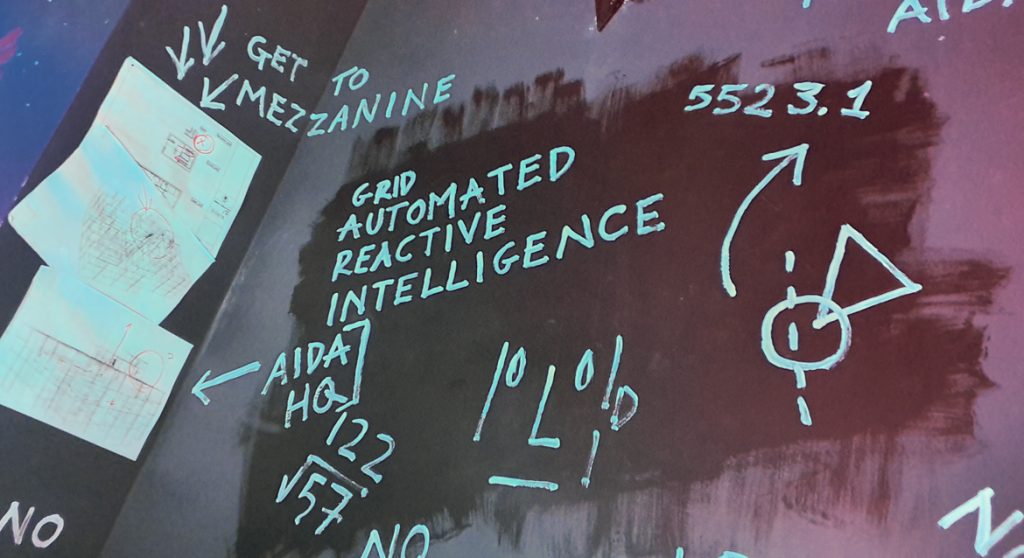 GET
TO
MEZZANINE
5523.1
GRID
AUTOMATED
REACTIVE
INTELLIGENCE
AIDA
HQ
122
√57.
NO
NO